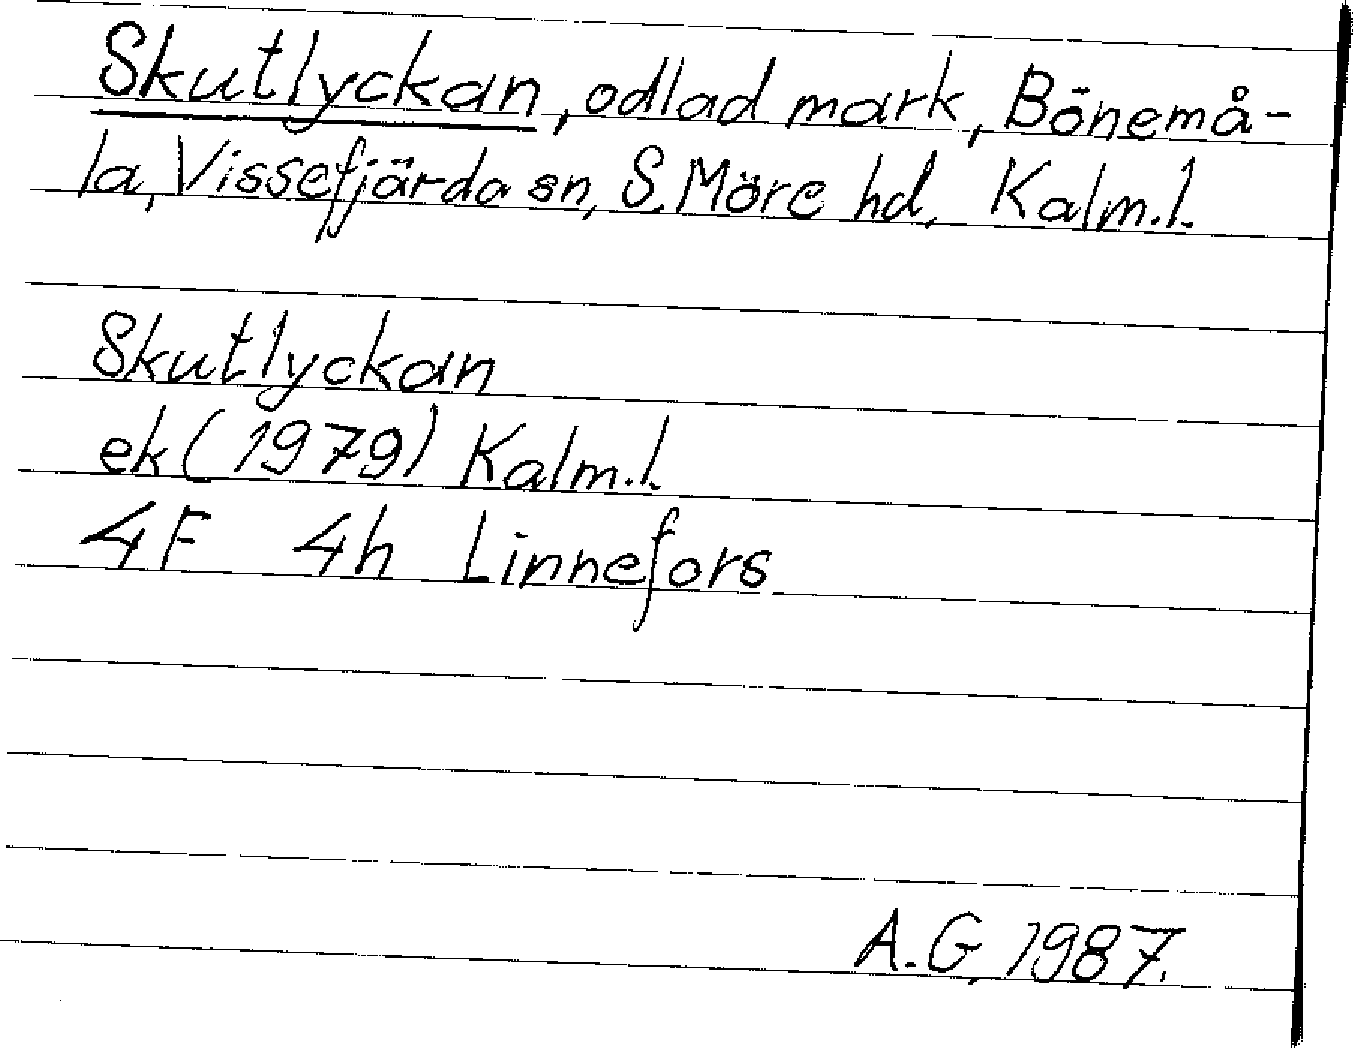 Skutlyckan, odlad mark, Bönemå-
la, Vissefjärda sn, S. Möre hd, Kalm.l.
Skutlyckan
ek (1979) Kalm.l.
4F 4h Linnefors
A.G, 1987.